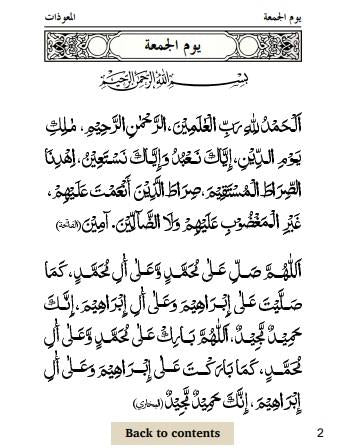 يوم الجمعة المعوذات
يوم الجمعة
بِسْمِ اللهِ الرَّحْمٰنِ الرَّحِيْمِ
اَلْحَمْدُ لِلّٰهِ رَبِّ الْعٰلَمِيْنَ، الرَّحْمٰنِ الرَّحِيْمِ، مٰلِكِ
يَوْمِ الدِّيْنِ، إِيَّاكَ نَعْبُدُ وَإِيَّاكَ نَسْتَعِيْنُ، اِهْدِنَا
الصِّرَاطَ الْمُسْتَقِيْمَ، صِرَاطَ الَّذِيْنَ أَنْعَمْتَ عَلَيْهِمْ،
غَيْرِ الْمَغْضُوْبِ عَلَيْهِمْ وَلَا الضَّآلِّيْنَ. آمِيْنَ (الفاتحة)
اَللّٰهُمَّ صَلِّ عَلٰى مُحَمَّدٍ وَّعَلٰى أٰلِ مُحَمَّدٍ، كَمَا
صَلَّيْتَ عَلٰى إِبْرَاهِيْمَ وَعَلٰى أٰلِ إِبْرَاهِيْمَ، إِنَّكَ
حَمِيْدٌ مَّجِيْدٌ، اَللّٰهُمَّ بَارِكْ عَلٰى مُحَمَّدٍ وَّعَلٰى أٰلِ
مُحَمَّدٍ، كَمَا بَارَكْتَ عَلٰى إِبْرَاهِيْمَ وَعَلٰى أٰلِ
إِبْرَاهِيْمَ، إِنَّكَ حَمِيْدٌ مَّجِيْدٌ (البخاري)
Back to contents 2